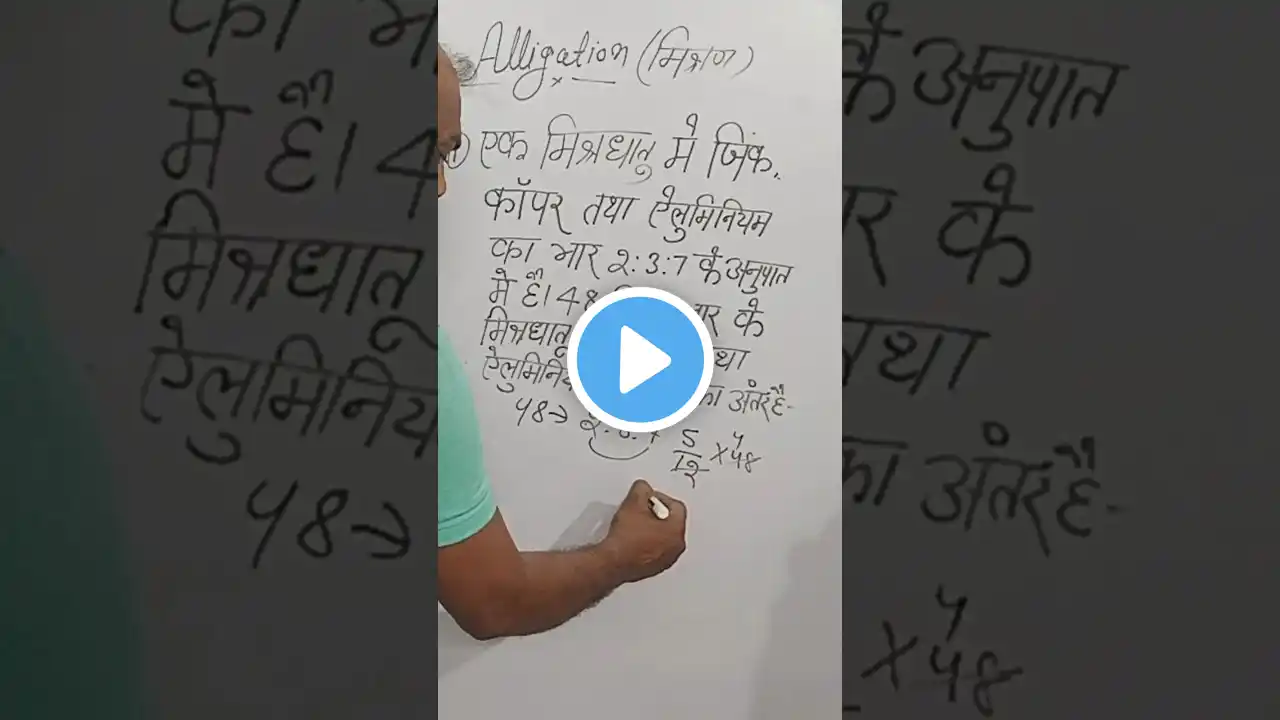 Alligation (मिश्रण)
एक मिश्रधातु मे जिंक,
कॉपर तथा ऐलुमिनियम
का भार 2:3:7 के अनुपात
मे है। 48 के
मिश्रधातु तथा
का अंतर है-
48→ 5/12 ×48 4